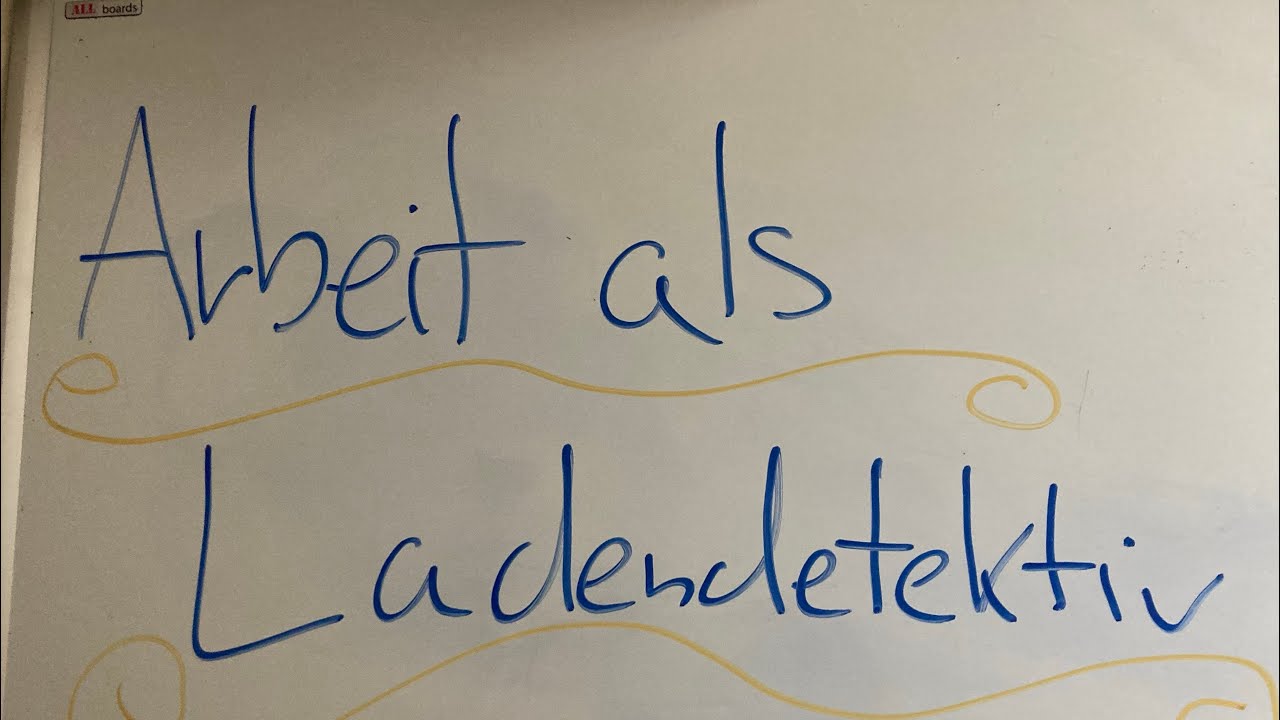 ALL boards
Arbeit als
Ladendetektiv